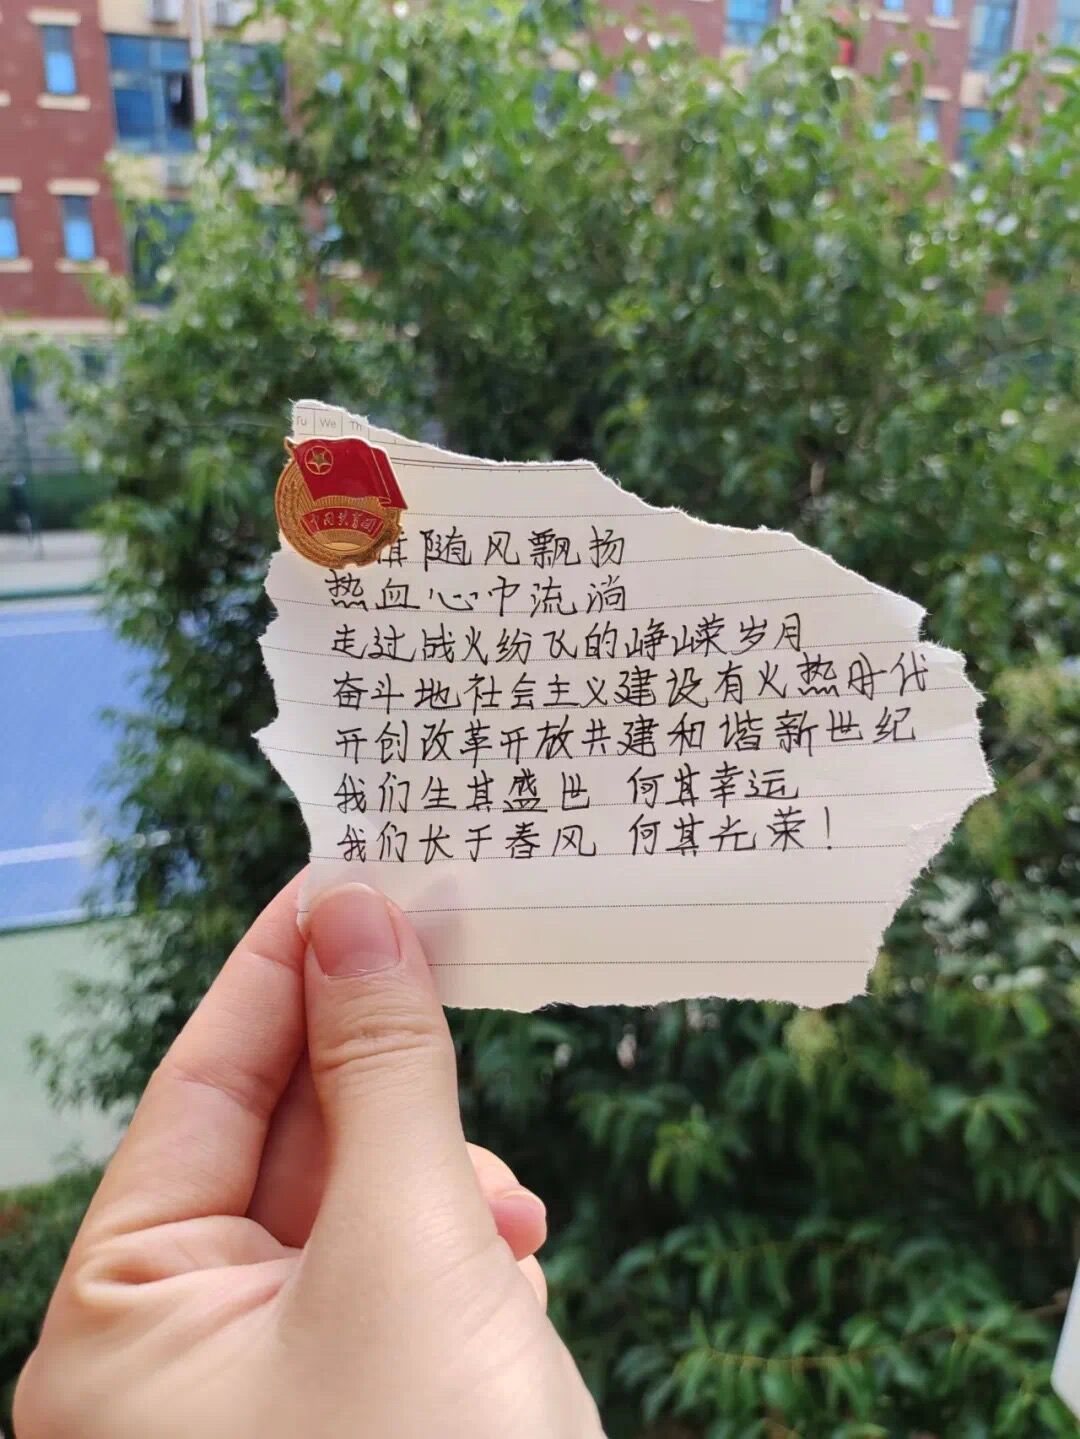 Tu We Th
中国共青团
旗随风飘扬
热血心中流淌
走过战火纷飞的峥嵘岁月
奋斗地社会主义建设有火热年代
开创改革开放共建和谐新世纪
我们生其盛世 何其幸运
我们长于春风 何其光荣!